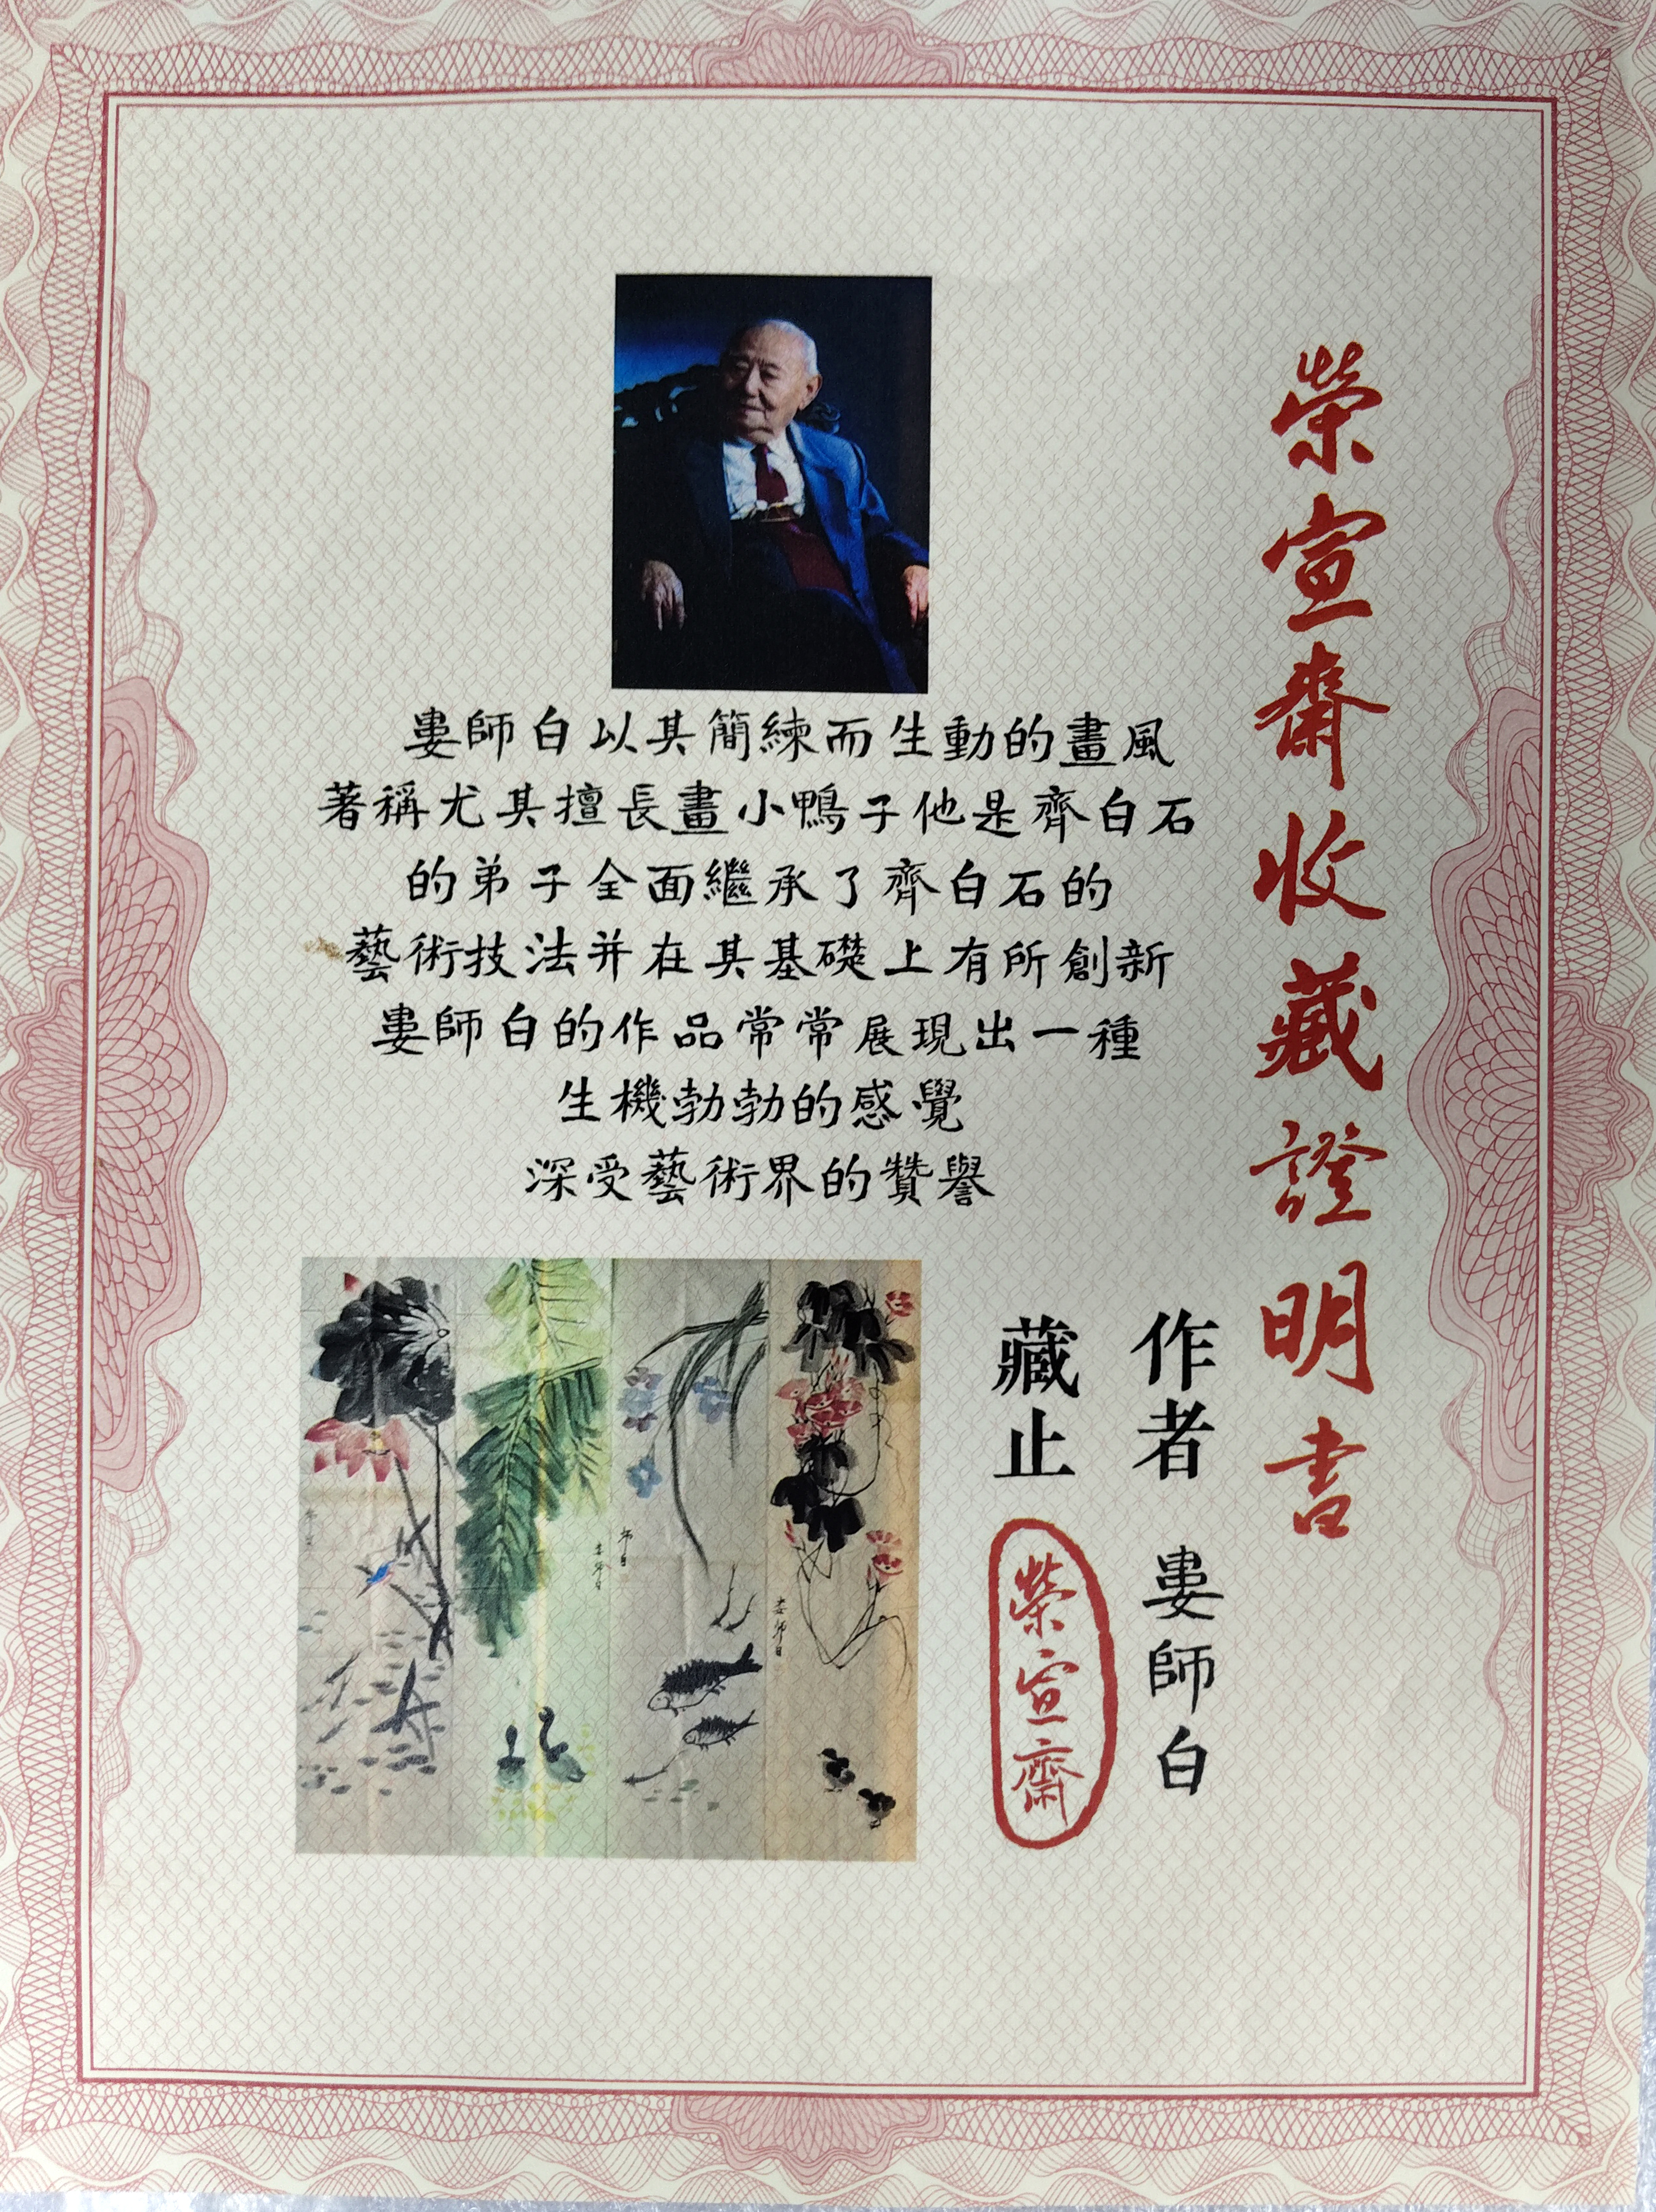 榮宣齋收藏證明書
婁師白以其簡練而生動的畫風
著稱尤其擅長畫小鴨子他是齊白石
的弟子全面繼承了齊白石的
藝術技法并在其基礎上有所創新
婁師白的作品常常展現出一種
生機勃勃的感覺
深受藝術界的贊譽
作者 婁師白
藏止 榮宣齋
师白
娄师白
师白
娄师白